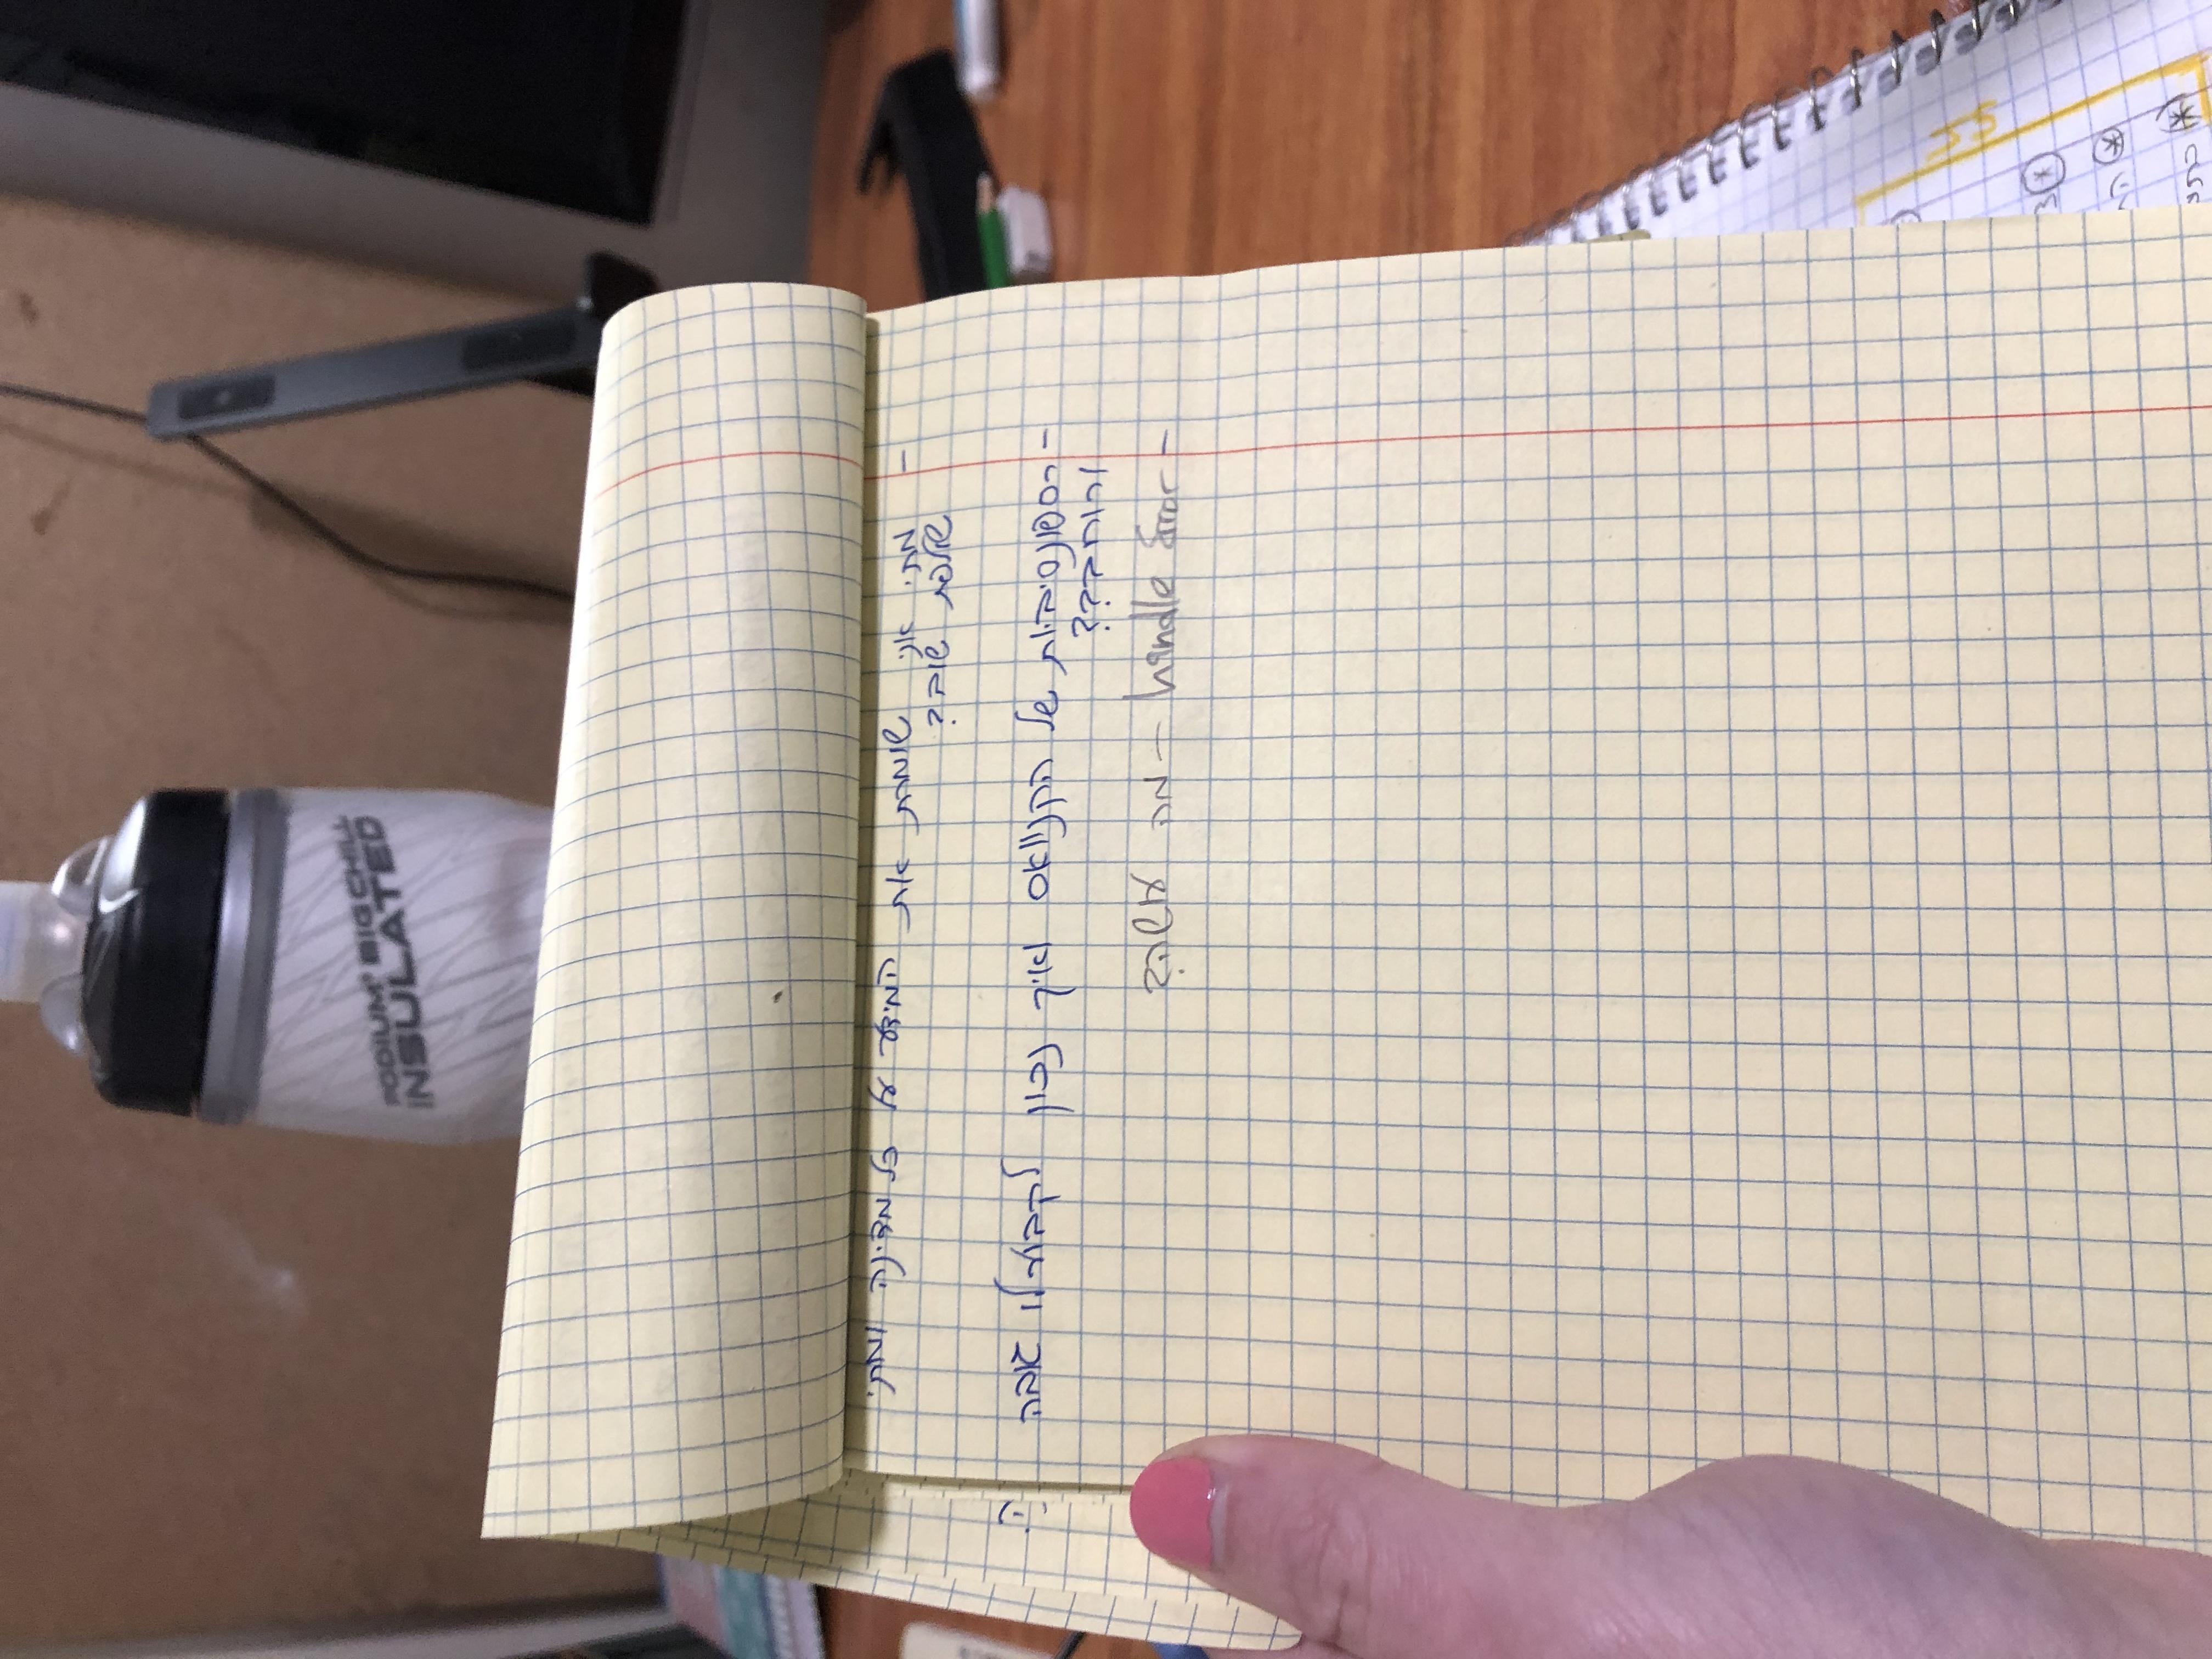 PODIUM® BIG CHILL
INSULATED
- מתי אני שומרת את המידע על כל מדינה ומתי
שולפת שוב?
- רספונסיביות של הקנוואס ואיך נכון לקבוע לו גובה
ורוחב???
- handle Error — מה עושה?
ה.
JS